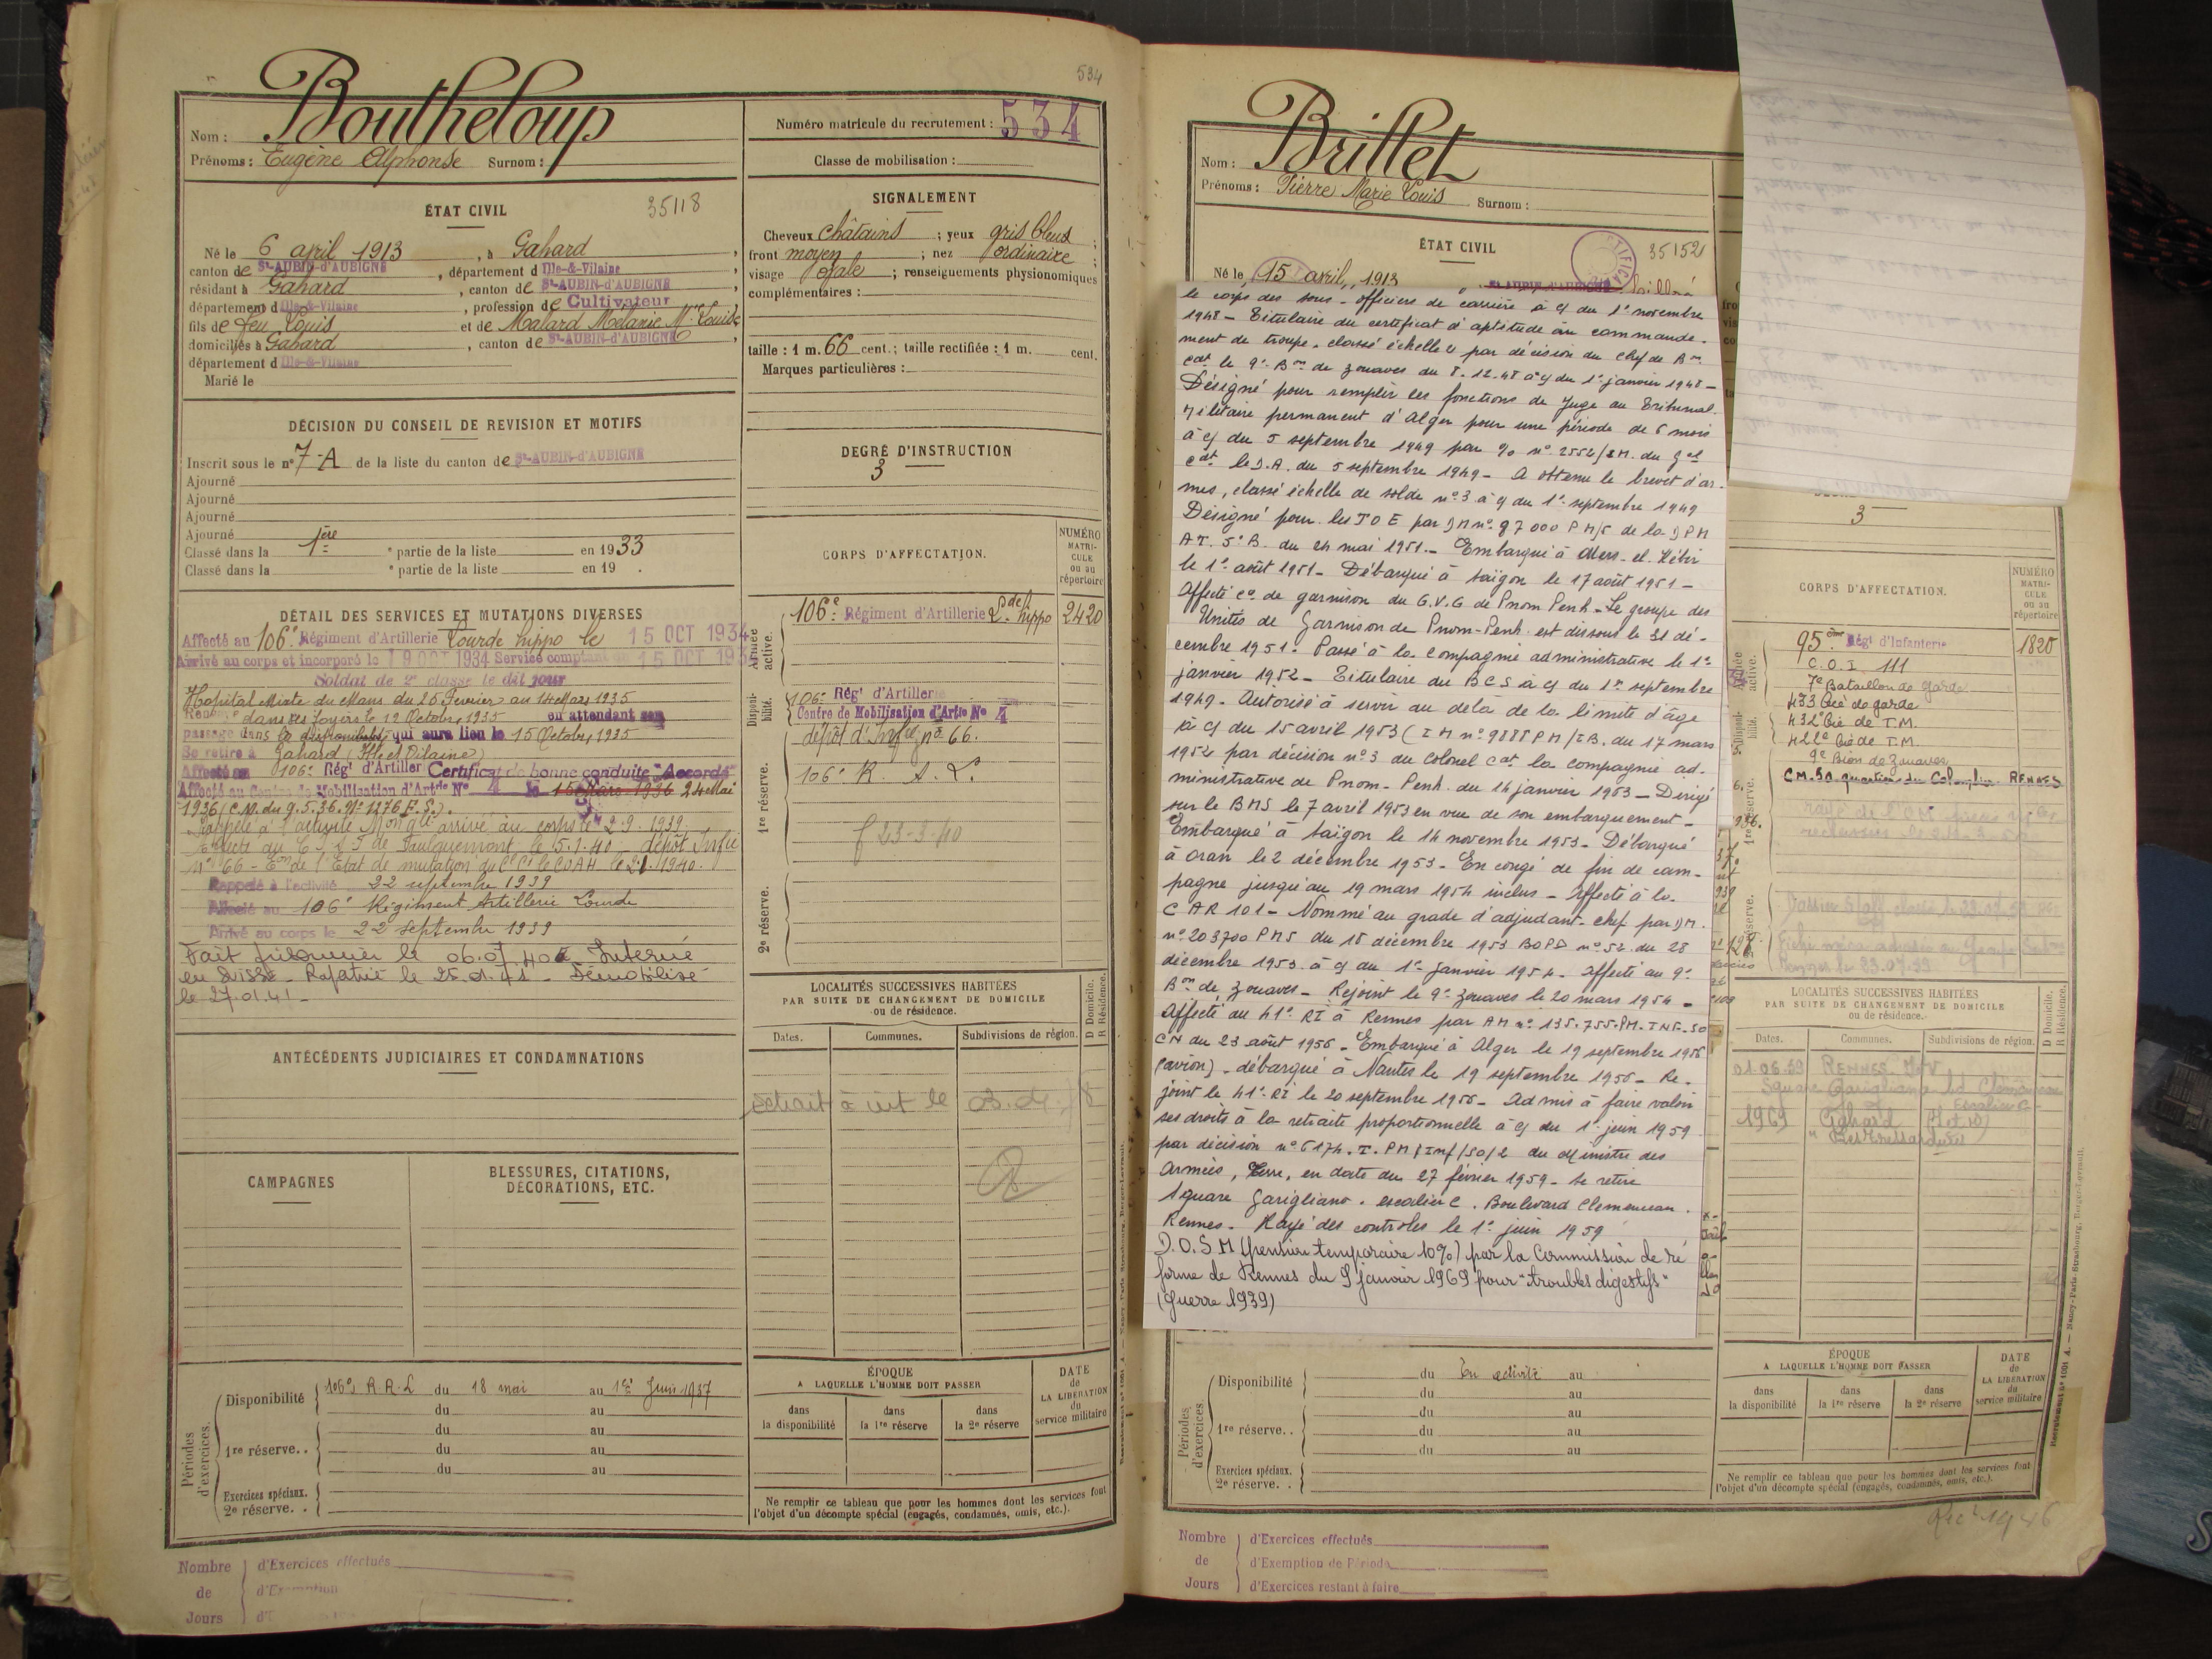 534
Nom : Boutheloup
Prénoms : Eugène Alphonse Surnom :
Numéro matricule du recrutement : 534
Classe de mobilisation :
ÉTAT CIVIL 35118
Né le 6 avril 1913, à Gahard,
canton de St-AUBIN-d'AUBIGNÉ, département d Ille-&-Vilaine,
résidant à Gahard, canton de St-AUBIN-d'AUBIGNÉ,
département d Ille-&-Vilaine, profession de Cultivateur
fils de feu Louis et de Malard Mélanie Mie Louise
domiciliés à Gahard, canton de St-AUBIN-d'AUBIGNÉ
département d Ille-&-Vilaine
Marié le
SIGNALEMENT
Cheveux châtains ; yeux gris bleus ;
front moyen ; nez ordinaire ;
visage ovale ; renseignements physionomiques
complémentaires :
taille : 1 m. 66 cent. ; taille rectifiée : 1 m. cent.
Marques particulières :
DÉCISION DU CONSEIL DE REVISION ET MOTIFS
Inscrit sous le n° 7-A de la liste du canton de St-AUBIN-d'AUBIGNÉ
Ajourné
Ajourné
Ajourné
Ajourné
Classé dans la 1ère e partie de la liste en 1933
Classé dans la e partie de la liste en 19 .
DEGRÉ D'INSTRUCTION
3
DÉTAIL DES SERVICES ET MUTATIONS DIVERSES
Affecté au 106e Régiment d'Artillerie Lourde hippo le 15 OCT 1934
Arrivé au corps et incorporé le 19 OCT 1934 Service comptant du 15 OCT 1934
Soldat de 2e classe le dit jour
Hopital Mixte du Mans du 25 Fevrier au 14 Mars 1935
dans ses foyers le 12 Octobre 1935 en attendant son
passage dans la disponibilité qui aura lieu le 15 Octobre 1935
Se retire à Gahard (Ille et Vilaine)
Affecté au 106e Régt d'Artillerie Certificat de bonne conduite "Accordé"
Affecté au Centre de Mobilisation d'Artrie N° 4 le 15 Mars 1936 24 Mai
1936 (C.M. du 9.5.36. N° 1276 E.S.)
Rappelé à l'activité Mon gle arrivé au corps le 2.9.1939.
le 5.1.40 dépôt Infie
N° 66 - Eon de l'Etat de mutation
Rappelé à l'activité 22 septembre 1939
Affecté au 106e Régiment Artillerie Lourde
Arrivé au corps le 22 septembre 1939
Fait prisonnier le Interné
en Suisse - Rapatrié le 25.01.41 - Démobilisé
le 27.01.41 -
CORPS D'AFFECTATION.
NUMÉRO MATRI-CULE ou au répertoire
Armée active.
106e Régiment d'Artillerie Lde hippo 2420
Disponi-bilité.
106e Régt d'Artillerie
Centre de Mobilisation d'Artie N° 4
dépôt d'Infie n° 66.
1re réserve.
106e R. A. L.
f 23-3-40
2e réserve.
ANTÉCÉDENTS JUDICIAIRES ET CONDAMNATIONS
LOCALITÉS SUCCESSIVES HABITÉES
PAR SUITE DE CHANGEMENT DE DOMICILE
ou de résidence.
D Domicile.
R Résidence.
Dates. Communes. Subdivisions de région.
CAMPAGNES
BLESSURES, CITATIONS,
DÉCORATIONS, ETC.
Périodes d'exercices.
Disponibilité 106e R.A.L du 18 mai au 1er Juin 1937
du au
du au
1re réserve. . du au
du au
Exercices spéciaux.
2e réserve. .
ÉPOQUE
A LAQUELLE L'HOMME DOIT PASSER
DATE de LA LIBÉRATION du service militaire
dans la disponibilité
dans la 1re réserve
dans la 2e réserve
Ne remplir ce tableau que pour les hommes dont les services font
l'objet d'un décompte spécial (engagés, condamnés, omis, etc.).
Nombre de Jours
d'Exercices effectués
d'Exemption
Nom : Brillet
Prénoms : Pierre Marie Louis Surnom :
ÉTAT CIVIL 35152
Né le 15 avril 1913
St-AUBIN-d'AUBIGNÉ
le corps des sous-officiers de carrière à cg du 1er novembre
1948 - Titulaire du certificat d'aptitude au commande-
ment de troupe, classé échelle 2 par décision du chef de Bon
Cdt le 9e Bon de zouaves du 8.12.48 à cg du 1er janvier 1948 -
Désigné pour remplir les fonctions de Juge au Tribunal
Militaire permanent d'Alger pour une période de 6 mois
à cg du 5 septembre 1949 par % n° 2552/EM. du Gal
Cdt le D.A. du 5 septembre 1949 - A obtenu le brevet d'ar-
mes, classé échelle de solde n° 3 à cg du 1er septembre 1949
Désigné pour les TOE par DM n° 97000 PM/5 de la DPM
AT. 5e B. du 24 mai 1951. - Embarqué à Mers-el-Kébir
le 1er août 1951 - Débarqué à Saïgon le 17 août 1951 -
Affecté Cie de garnison du G.V.G de Pnom Penh - Le groupe des
Unités de Garnison de Pnom-Penh est dissous le 31 dé-
cembre 1951. Passé à la Compagnie administrative le 1er
janvier 1952 - Titulaire du BCS à cg du 1er septembre
1949 - Autorisé à servir au delà de la limite d'âge
à cg du 15 avril 1953 (IM n° 9888 PM/IB. du 17 mars
1952 par décision n° 3 du Colonel Cdt la compagnie ad-
ministrative de Pnom-Penh du 14 janvier 1953 - Dirigé
sur le BMS le 7 avril 1953 en vue de son embarquement -
Embarqué à Saïgon le 14 novembre 1953 - Débarqué
à Oran le 2 décembre 1953 - En congé de fin de cam-
pagne jusqu'au 19 mars 1954 inclus - Affecté à la
CAR 101 - Nommé au grade d'adjudant-chef par DM.
n° 203700 PMS du 18 décembre 1953 BOPD n° 52 du 28
décembre 1953 à cg du 1er janvier 1954 - Affecté au 9e
Bon de zouaves - Rejoint le 9e zouaves le 20 mars 1954 -
Affecté au 41e RI à Rennes par AM n° 135.755.PM-INF-SO
CN du 23 août 1956 - Embarqué à Alger le 19 septembre 1956
(avion) - débarqué à Nantes le 19 septembre 1956 - Re-
joint le 41e RI le 20 septembre 1956 - Admis à faire valoir
ses droits à la retraite proportionnelle à cg du 1er juin 1959
par décision n° 6174.T.PM/Inf/SO/2 du Ministre des
Armées, Terre, en date du 27 février 1959 - Se retire
Square Garigliano. escalier C. Boulevard Clemenceau.
Rennes - Rayé des contrôles le 1er juin 1959
D.O.S.M (pension temporaire 10%) par la Commission de ré
forme de Rennes du 9 janvier 1969 pour "troubles digestifs"
(guerre 1939)
3
CORPS D'AFFECTATION.
NUMÉRO MATRI-CULE ou au répertoire
95ème Régt d'Infanterie 1820
C.O.I 111
7e Bataillon de garde
433 Cie de garde
432e Cie de T.M.
422e Cie de T.M.
9e Bion de Zouaves
CM.30 quartier du Colombier RENNES
LOCALITÉS SUCCESSIVES HABITÉES
PAR SUITE DE CHANGEMENT DE DOMICILE
ou de résidence.
D Domicile.
R Résidence.
Dates. Communes. Subdivisions de région.
01.06.59 RENNES I&V
Square Garigliano bd Clemenceau
Escalier C
1969 Gahard
Périodes d'exercices.
Disponibilité du En activité au
du au
1re réserve. . du au
du au
du au
Exercices spéciaux.
2e réserve. .
ÉPOQUE
A LAQUELLE L'HOMME DOIT PASSER
DATE de LA LIBÉRATION du service militaire
dans la disponibilité
dans la 1re réserve
dans la 2e réserve
Ne remplir ce tableau que pour les hommes dont les services font
l'objet d'un décompte spécial (engagés, condamnés, omis, etc.).
Nombre de Jours
d'Exercices effectués
d'Exemption de Période
d'Exercices restant à faire
Recrutement n° 1001 A. — Nancy-Paris-Strasbourg, Berger-Levrault.